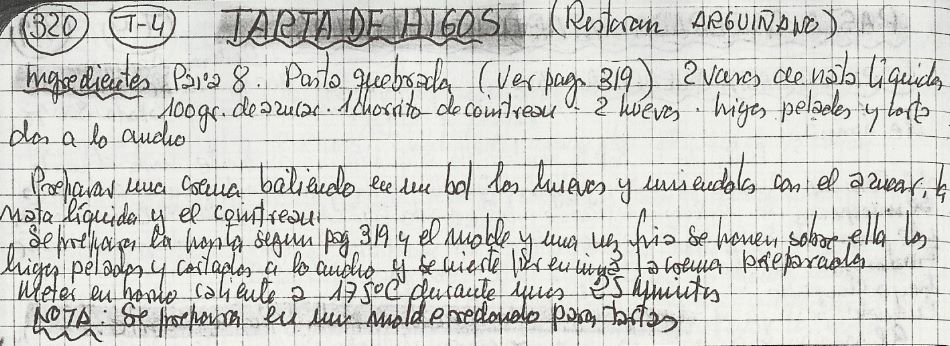 320 T-4 TARTA DE HIGOS (Restaran ARGUIÑANO)
Ingredientes Para 8. Pasta quebrada (ver pag. 319) 2 vasos de nata líquida
100 gr. de azucar. 1 chorrito de cointreau - 2 huevos. higos pelados y corta
dos a lo ancho
Preparar una crema batiendo en un bol los huevos y uniendolos con el azucar, la
nata líquida y el cointreau
Se prepara la pasta segun pag 319 y el molde y una vez frio se ponen sobre ella los
higos pelados y cortados a lo ancho y se vierte por encima la crema preparada
Meter en horno caliente a 175ºC durante unos 25 minutos
NOTA: Se prepara en un molde redondo para tartas